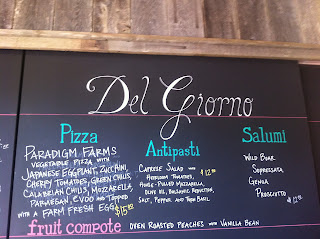 Del Giorno
Pizza
PARADIGM FARMS
VEGETABLE PIZZA WITH
JAPANESE EGGPLANT, ZUCCHINI,
CHERRY TOMATOES, GREEN CHILIS,
CALABRIAN CHILIS, MOZZARELLA,
PARMESAN, EVOO AND TOPPED
WITH A FARM FRESH EGG $15.95
Antipasti
CAPRESE SALAD WITH $12.00
HEIRLOOM TOMATOES,
HOUSE-PULLED MOZZARELLA,
OLIVE OIL, BALSAMIC REDUCTION,
SALT, PEPPER, AND TORN BASIL
Salumi
WILD BOAR
SOPRESSATA
GENOA
PROSCIUTTO
fruit compote OVEN ROASTED PEACHES WITH VANILLA BEAN